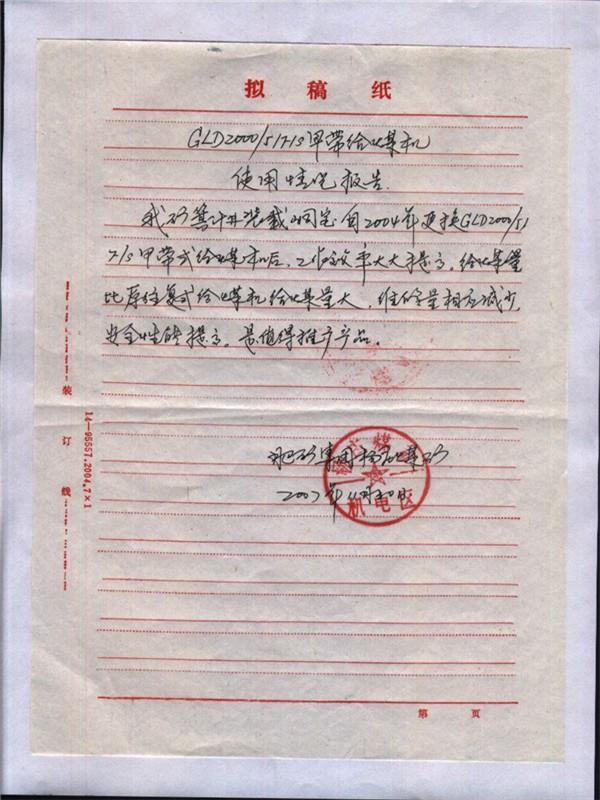 拟稿纸
GLD2000/5/7/S甲带给煤机
使用情况报告
我矿箕斗井装载硐室自2004年更换GLD2000/5/
7/S甲带式给煤机后，工作效率大大提高，给煤量
比原往复式给煤机给煤量大，维修量相应减少，
安全性能提高。是值得推广产品。
肥矿集团杨庄煤矿
2007年11月20日
机电区
装
订
线
14—95557.2004.7×1
第 页